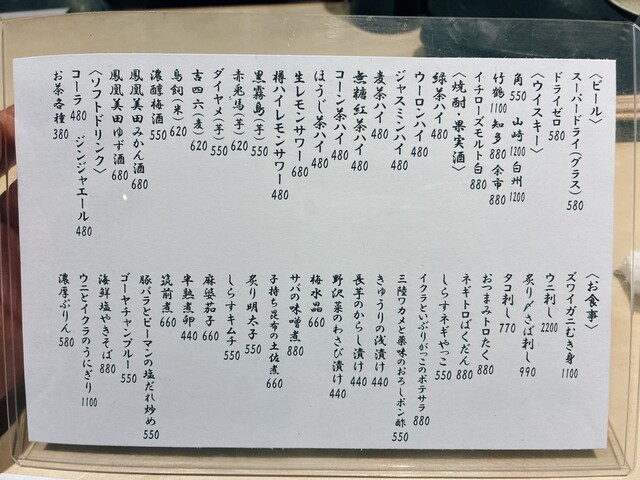 〈ビール〉
スーパードライ(グラス) 580
ドライゼロ 580
〈ウイスキー〉
角 550 山崎 1200 白州 1200
竹鶴 1100 知多 880 余市 880
イチローズモルト白 880
〈焼酎・果実酒〉
緑茶ハイ 480
ウーロンハイ 480
ジャスミンハイ 480
麦茶ハイ 480
無糖紅茶ハイ 480
コーン茶ハイ 480
ほうじ茶ハイ 480
生レモンサワー 680
樽ハイレモンサワー 480
黒霧島(芋) 550
赤兎馬(芋) 620
ダイヤメ(芋) 550
吉四六(麦) 620
鳥飼(米) 620
濃醇梅酒 550
鳳凰美田みかん酒 680
鳳凰美田ゆず酒 680
〈ソフトドリンク〉
コーラ 480 ジンジャエール 480
お茶各種 380
〈お食事〉
ズワイガニむき身 1100
ウニ刺し 2200
炙り〆さば刺し 990
タコ刺し 770
おつまみトロたく 880
ネギトロばくだん 880
しらすネギやっこ 550
イクラといぶりがっこのポテサラ 880
三陸ワカメと薬味のおろしポン酢 550
きゅうりの浅漬け 440
長芋のからし漬け 440
野沢菜のわさび漬け 440
梅水晶 660
サバの味噌煮 880
子持ち昆布の土佐煮 660
炙り明太子 550
しらすキムチ 550
麻婆茄子 660
半熟煮卵 440
筑前煮 660
豚バラとピーマンの塩だれ炒め 550
ゴーヤチャンプルー 550
海鮮塩やきそば 880
ウニとイクラのうにぎり 1100
濃厚ぷりん 580